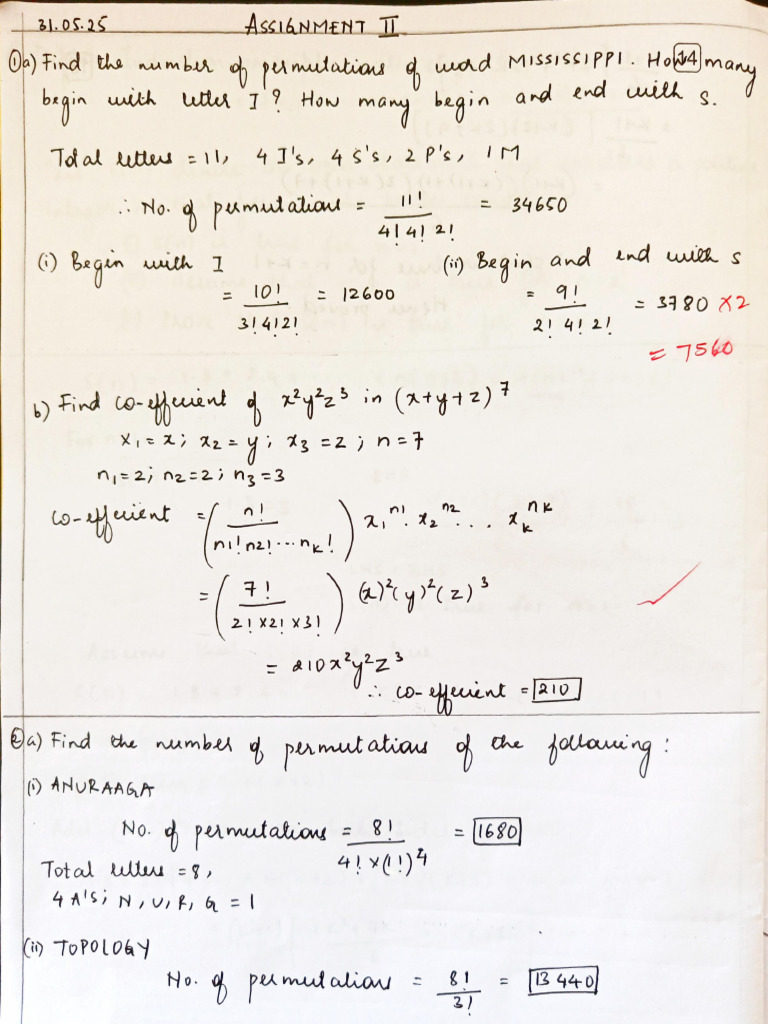 31.05.25 ASSIGNMENT II
① a) Find the number of permutations of word MISSISSIPPI. How many
begin with letter I ? How many begin and end with s.
Total letters = 11, 4 I's, 4 S's, 2 P's, 1 M
∴ No. of permutations = 11! / 4! 4! 2! = 34650
(i) Begin with I
= 10! / 3! 4! 2! = 12600
(ii) Begin and end with s
= 9! / 2! 4! 2! = 3780 ×2
= 7560
b) Find co-efficient of x²y²z³ in (x+y+z)⁷
x₁ = x; x₂ = y; x₃ = z; n = 7
n₁ = 2; n₂ = 2; n₃ = 3
co-efficient = (n! / n₁! n₂! ... nₖ!) x₁ⁿ¹. x₂ⁿ² ... xₖⁿᵏ
= (7! / 2! × 2! × 3!) (x)²(y)²(z)³
= 210x²y²z³
∴ co-efficient = 210
② a) Find the number of permutations of the following :
(i) ANURAAGA
No. of permutations = 8! / 4! × (1!)⁴ = 1680
Total letters = 8,
4 A's; N, U, R, G = 1
(ii) TOPOLOGY
No. of permutations = 8! / 3! = 13440